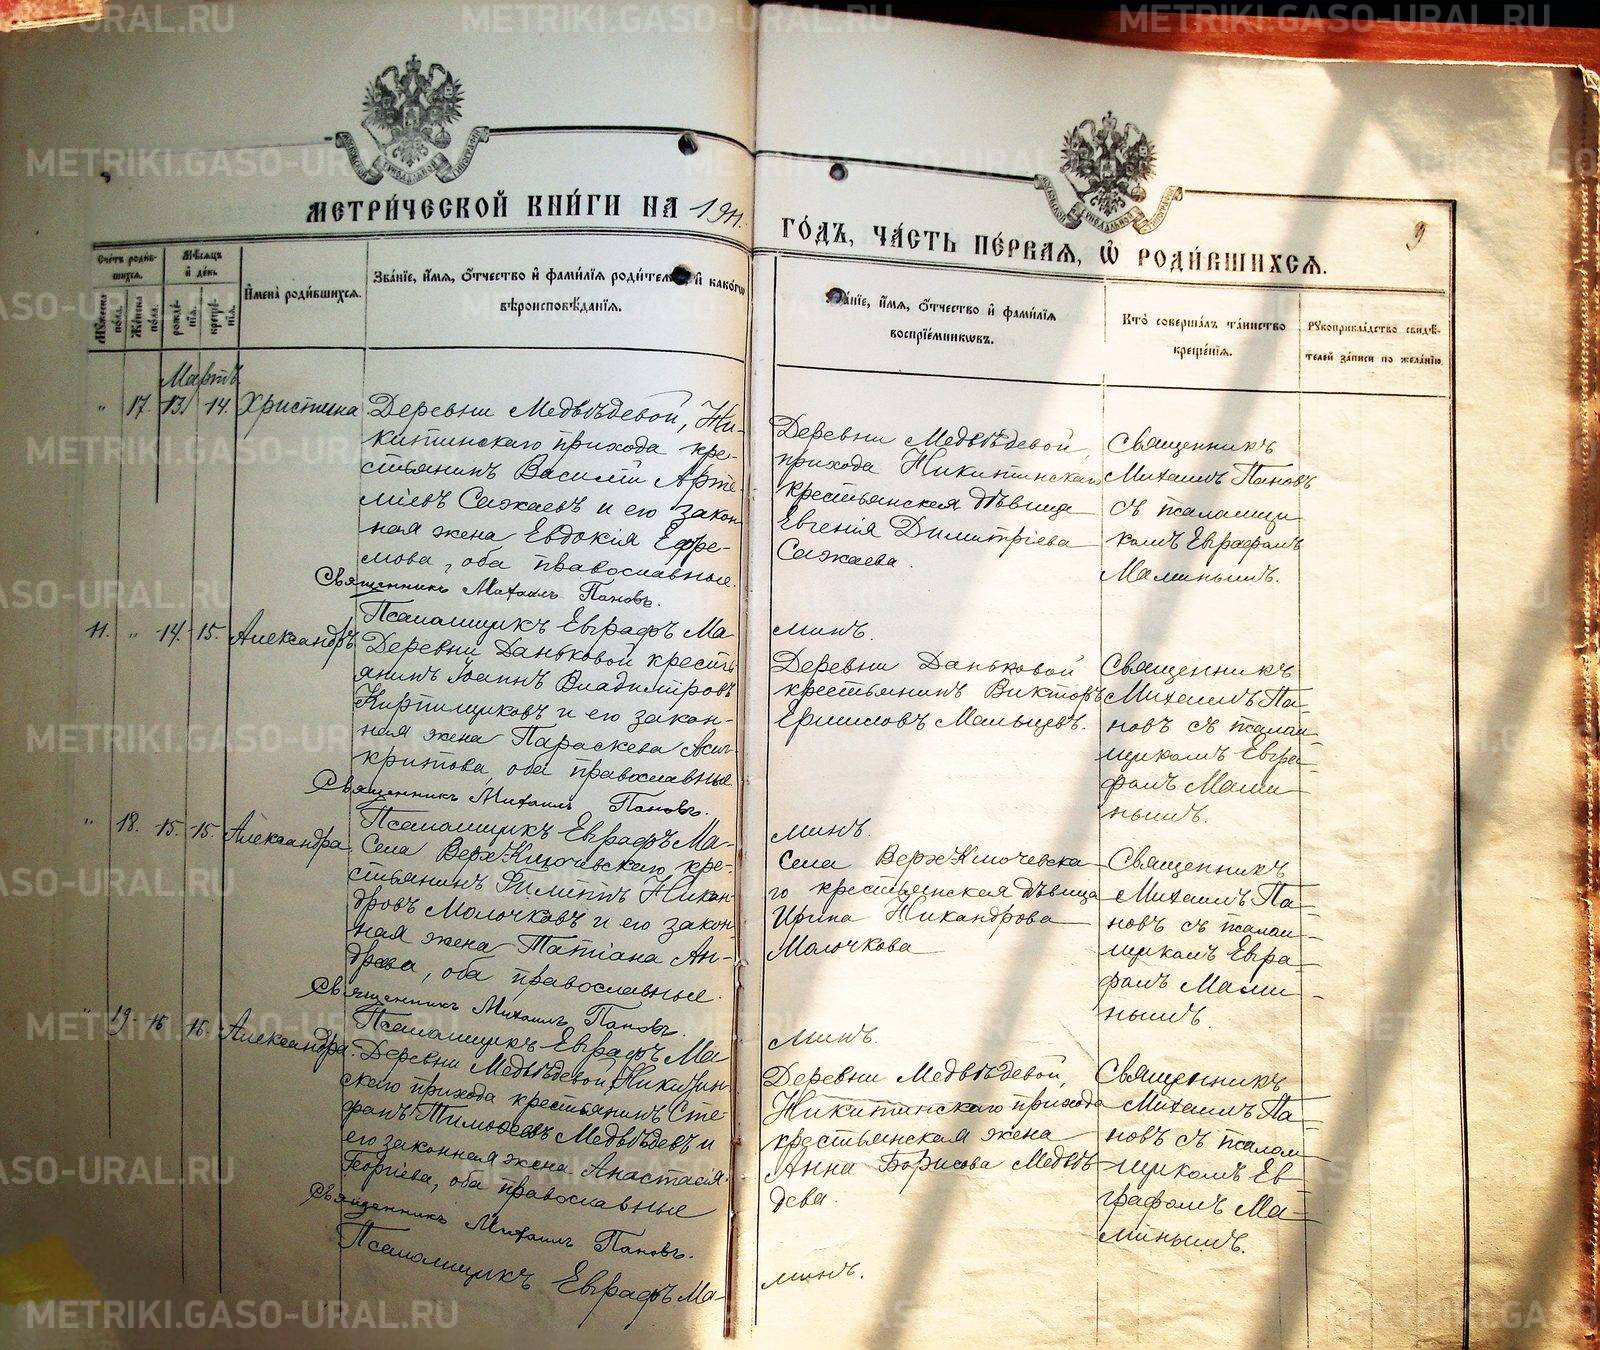 МЕТРИ́ЧЕСКОЙ КНИ́ГИ НА 1911.
ГО́ДЪ, ЧА́СТЬ ПЕ́РВАЯ, Ѽ РОДИ́ВШИХСЯ.
9
Счетъ роди́вшихся.
Мѣсяцъ и день
Мужеска пола.
Женска пола.
рожде́нїя.
креще́нїя.
И҆мена̀ роди́вшихся.
Зва́нїе, и҆́мя, ѻ҆́тчество и҆ фами́лїя роди́телей, и҆ како́гѡ
вѣроисповѣ́данїя.
Зва́нїе, и҆́мя, ѻ҆́тчество и҆ фами́лїя
воспрїе́мникѡвъ.
Кто̀ соверша́лъ та́инство
креще́нїя.
Рꙋкоприкла́дство свидѣ́-
телей за́писи по жела́нїю.
Мартъ
" 17. 13. 14. Христина
Деревни Медвѣдевой, Ни-
китинскаго прихода кре-
стьянинъ Василій Арте-
міевъ Сажаевъ и его закон-
ная жена Евдокія Ефре-
мова, оба православные.
Священникъ Михаилъ Пановъ.
Псаломщикъ Евграфъ Ма-
минъ.
Деревни Медвѣдевой,
прихода Никитинскаго
крестьянская дѣвица
Евгенія Димитріева
Сажаева.
Священникъ
Михаилъ Пановъ
съ псаломщи-
комъ Евграфомъ
Маминымъ.
11. " 14. 15. Александръ
Деревни Даньковой кресть-
янинъ Іоаннъ Владиміровъ
Кирпищиковъ и его закон-
ная жена Параскева Асин-
критова, оба православные
Священникъ Михаилъ Пановъ.
Псаломщикъ Евграфъ Ма-
минъ.
Деревни Даньковой
крестьянинъ Викторъ
Ермиловъ Мальцевъ.
Священникъ
Михаилъ Па-
новъ съ псалом-
щикомъ Евгра-
фомъ Мами-
нымъ.
" 18. 15. 15. Александра
Села Верх-Ключевскаго кре-
стьянинъ Филиппъ Никан-
дровъ Молочковъ и его закон-
ная жена Татіана Ан-
дреева, оба православные.
Священникъ Михаилъ Пановъ.
Псаломщикъ Евграфъ Ма-
минъ.
Села Верх-Ключевска-
го крестьянская дѣвица
Ирина Никандрова
Молочкова
Священникъ
Михаилъ Па-
новъ съ псалом-
щикомъ Евра-
фомъ Мами-
нымъ.
" 19. 16 16. Александра.
Деревни Медвѣдевой, Никитин-
скаго прихода крестьянинъ Сте-
фанъ Тимофеевъ Медвѣдевъ и
его законная жена Анастасія
Георгіева, оба православные
Священникъ Михаилъ Пановъ.
Псаломщикъ Евграфъ Ма-
минъ.
Деревни Медвѣдевой,
Никитинскаго прихода
крестьянская жена
Анна Борисова Медвѣ-
дева.
Священникъ
Михаилъ Па-
новъ съ псалом-
щикомъ Ев-
графомъ Ма-
минымъ.
METRIKI.GASO-URAL.RU